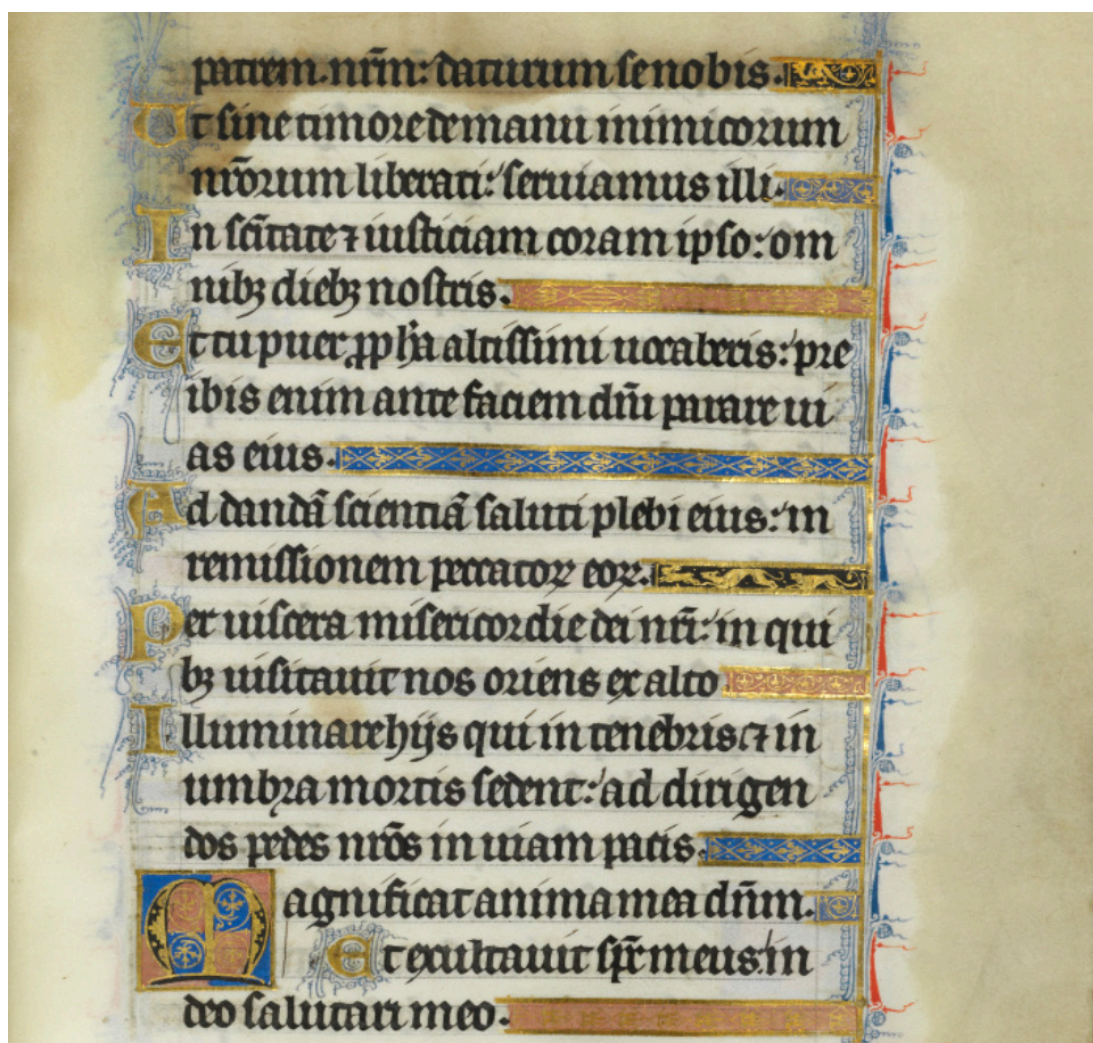 patrem nr̃m: daturum se nobis.
Ut sine timore de manu inimicorum
nr̃orum liberati: seruiamus illi.
In sc̃itate ⁊ iusticiam coram ipso: om
nibꝫ diebꝫ nostris.
Et tu puer ꝓph̃a altissimi uocaberis: pre
ibis enim ante faciem dñi parare ui
as eius.
Ad dandã scientiã saluti plebi eius: in
remissionem peccatoꝝ eoꝝ.
Per uiscera misericordie dei nr̃i: in qui
bꝫ uisitauit nos oriens ex alto
Illuminare hijs qui in tenebris ⁊ in
umbra mortis sedent: ad dirigen
dos pedes nr̃os in uiam pacis.
Magnificat anima mea dñm.
Et exultauit sp̃c meus: in
deo salutari meo.